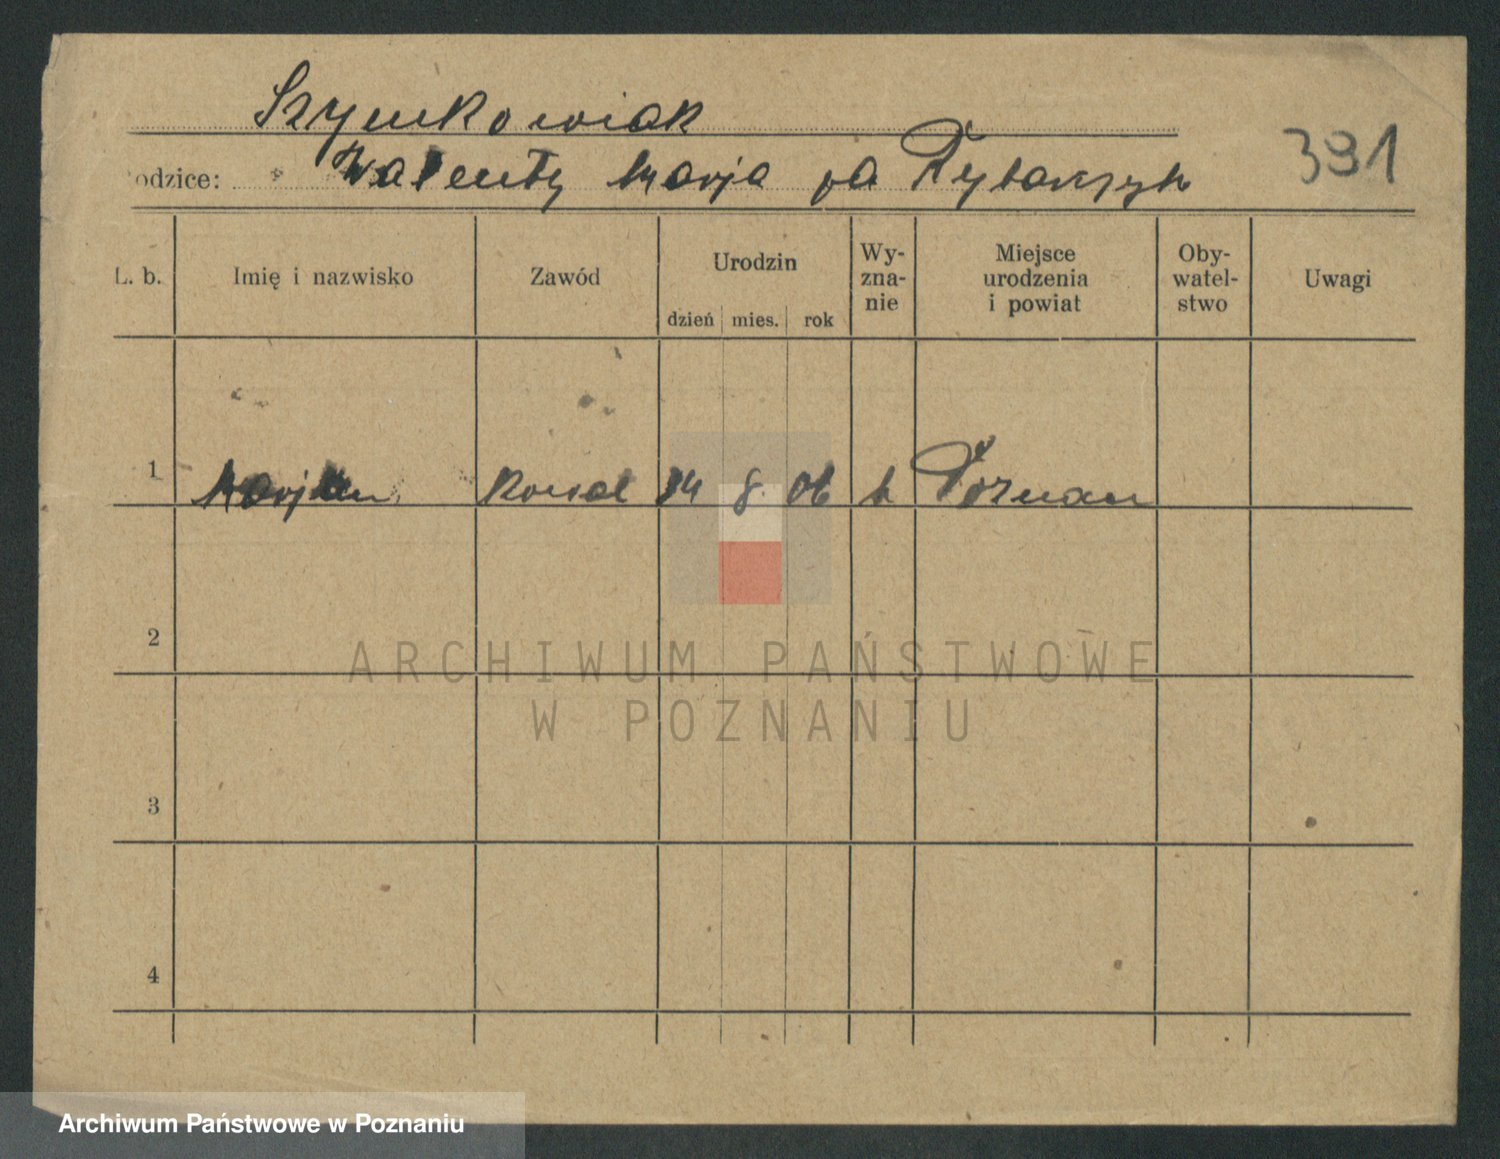 Szymkowiak
391
odzice: Walenty Marja
L. b. Imię i nazwisko Zawód Urodzin dzień mies. rok Wy-zna-nie Miejsce urodzenia i powiat Oby-watel-stwo Uwagi
1 Marjan Kowal 14 8. 06 k Poznan
2
ARCHIWUM PAŃSTWOWE
W POZNANIU
3
4
Archiwum Państwowe w Poznaniu